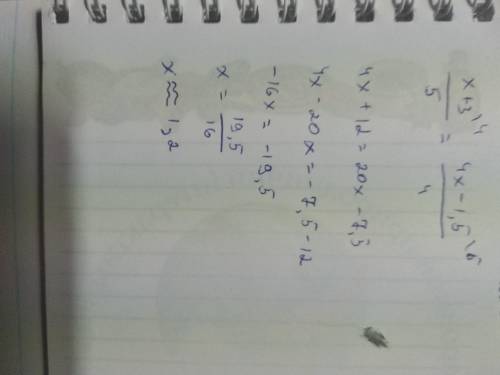 x+3\4 / 5 = 4x-1,5\5 / 4
4x + 12 = 20x - 7,5
4x - 20x = - 7,5 - 12
-16x = -19,5
x = 19,5 / 16
x ≈ 1,2